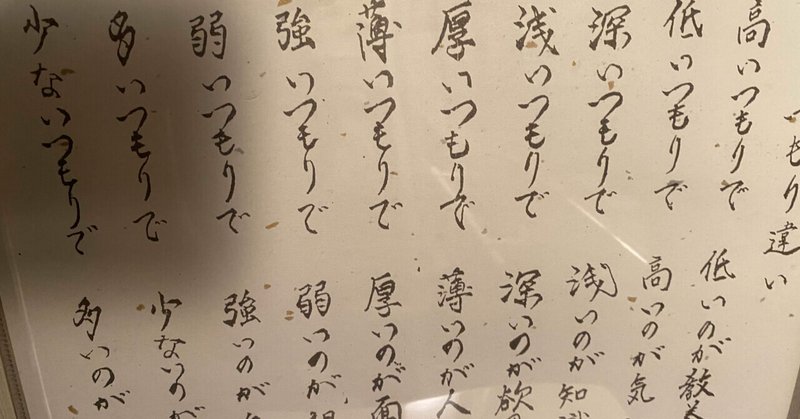 つもり違い
高いつもりで 低いのが教
低いつもりで 高いのが気
深いつもりで 浅いのが知
浅いつもりで 深いのが欲
厚いつもりで 薄いのが人
薄いつもりで 厚いのが面
強いつもりで 弱いのが
弱いつもりで 強いのが
多いつもりで 少ないのが
少ないつもりで 多いのが